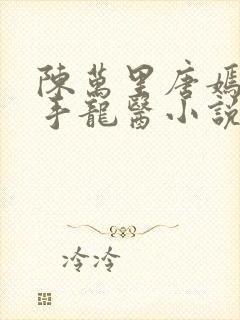 陳萬里唐嫣
手龍醫小說
冷冷